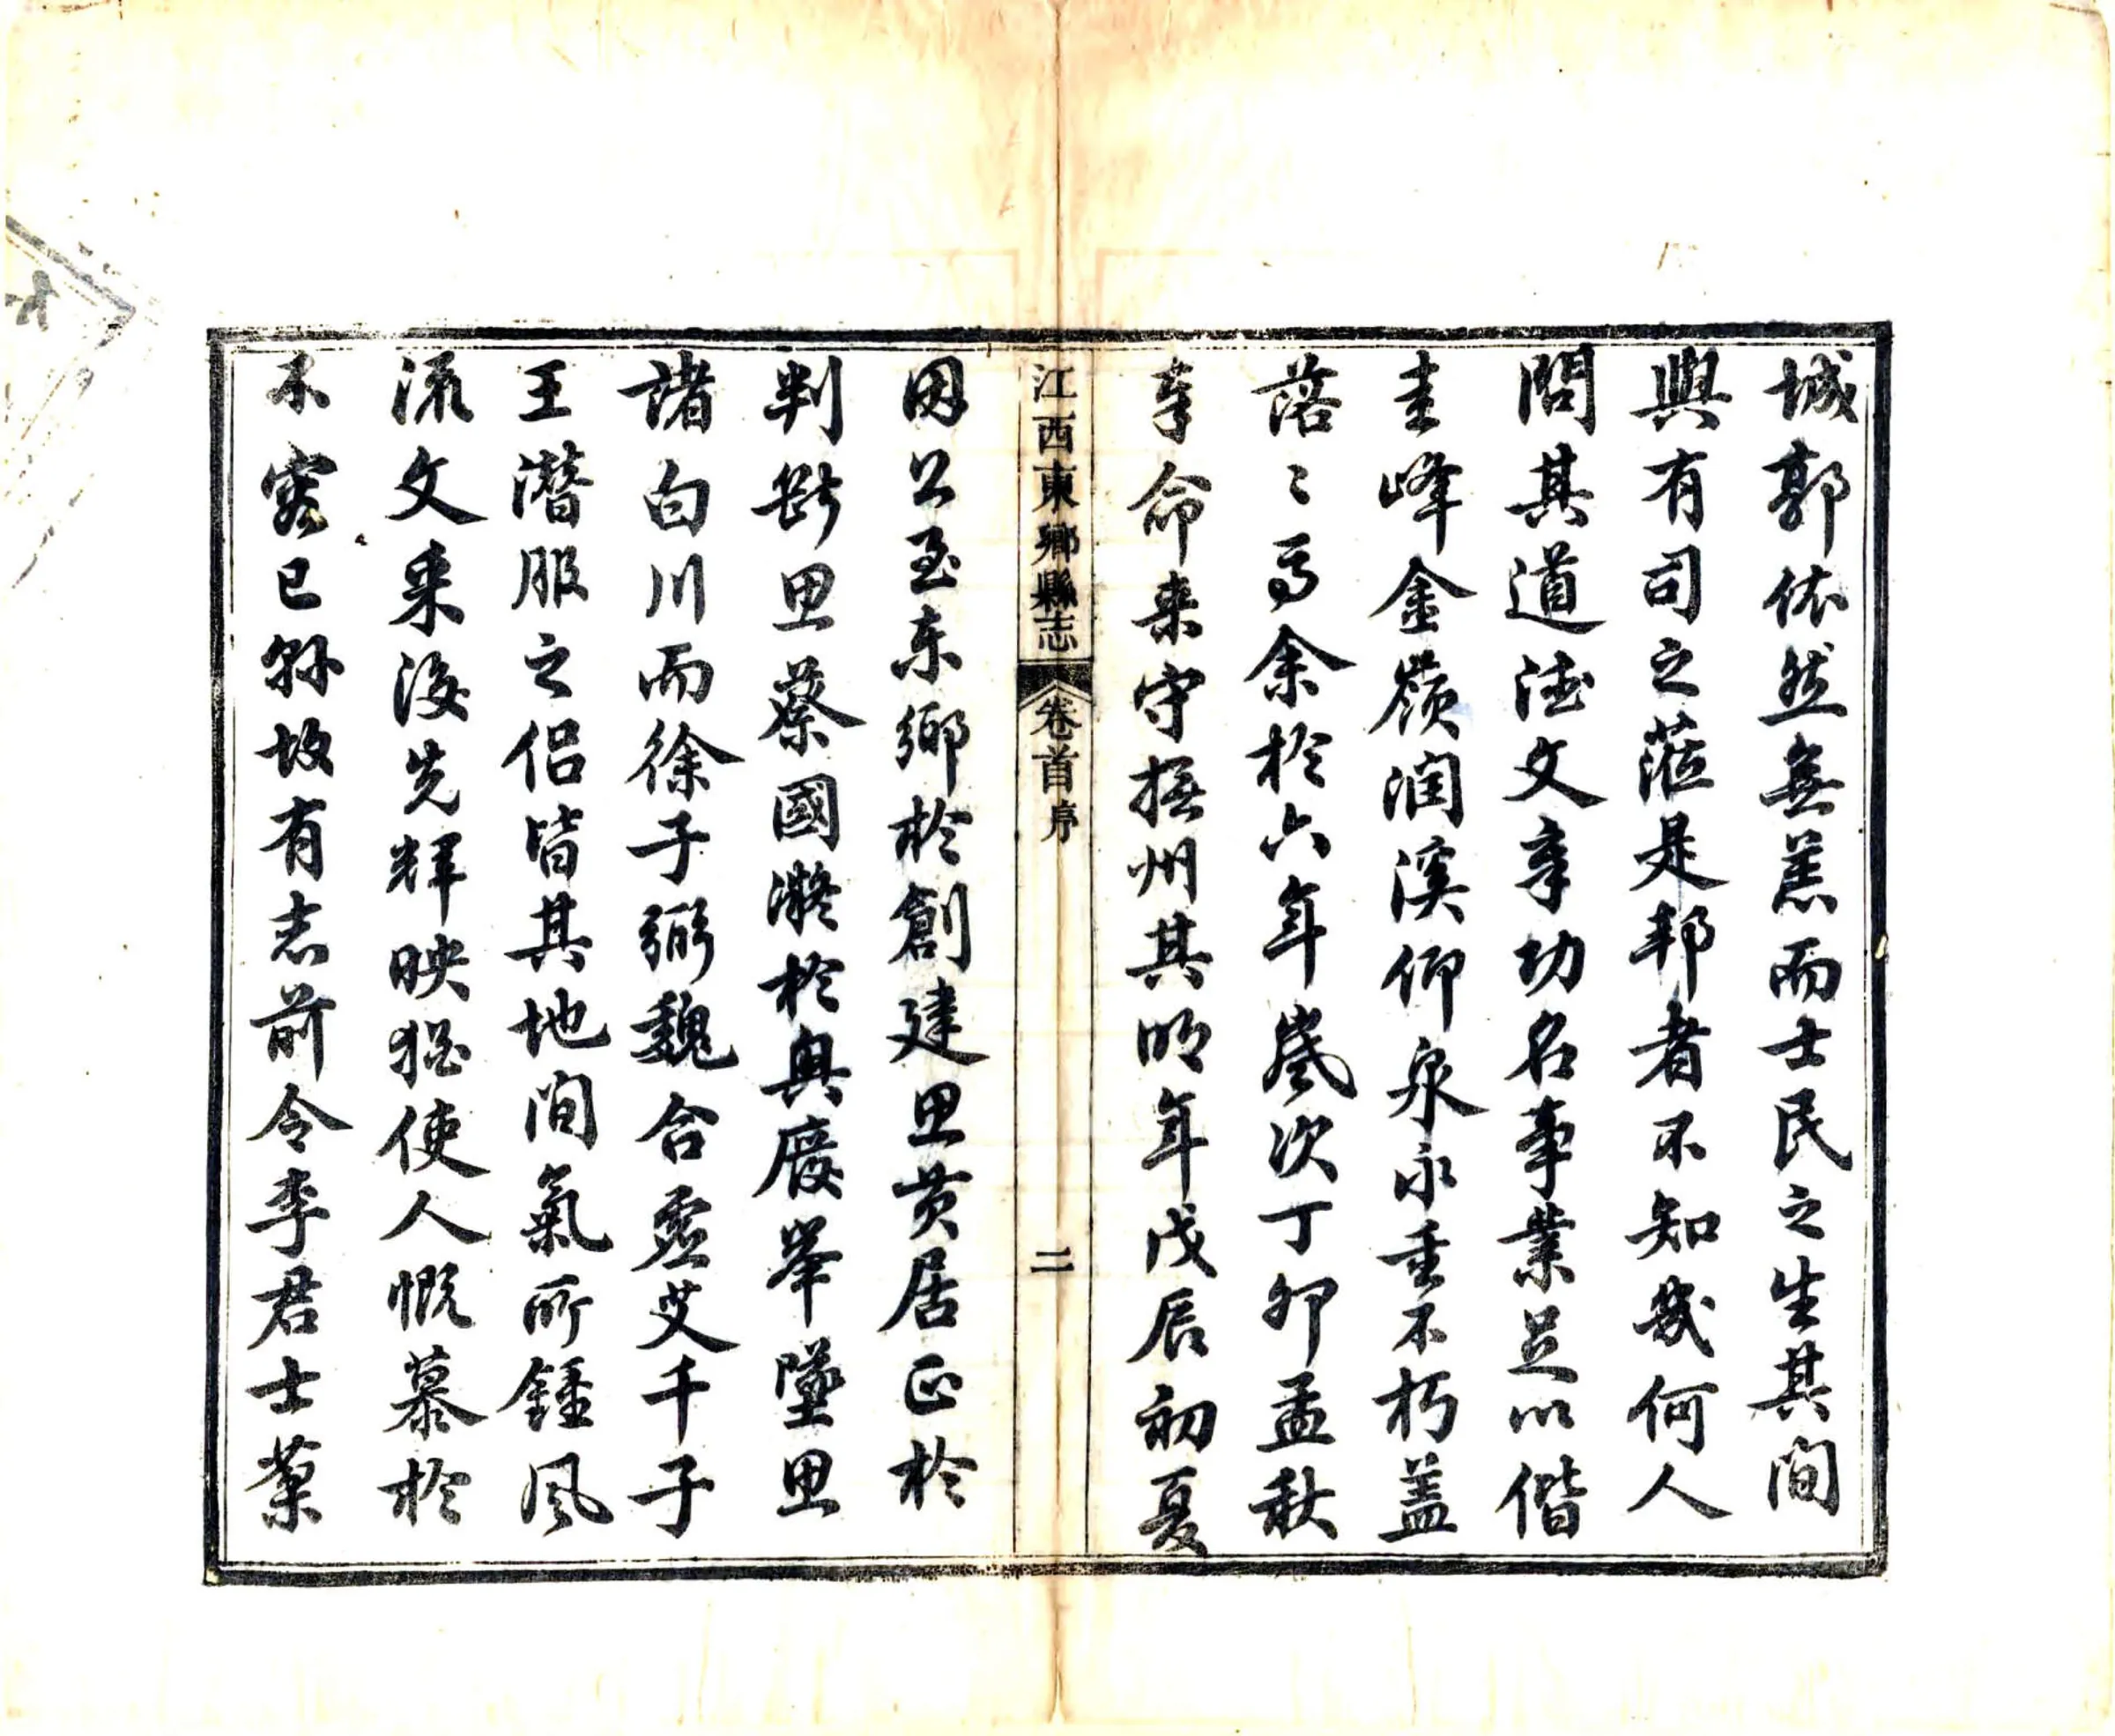 城郭依然無恙而士民之生其間
與有司之蒞是邦者不知幾何人
問其道德文章功名事業足以偕
圭峰金嶺潤溪仰泉永垂不朽蓋
落〻焉余於六年歲次丁卯孟秋
奉命来守撫州其明年戊辰初夏
江西東鄉縣志
卷首序
二
因公至东鄉於創建思黄居正於
判斷思蔡國漋於興廢舉墜思
諸白川而徐子弼魏合虛艾千子
王潛服之侣皆其地間氣所鍾風
流文采後先輝映猶使人慨慕於
不容已縣故有志前令李君士棻